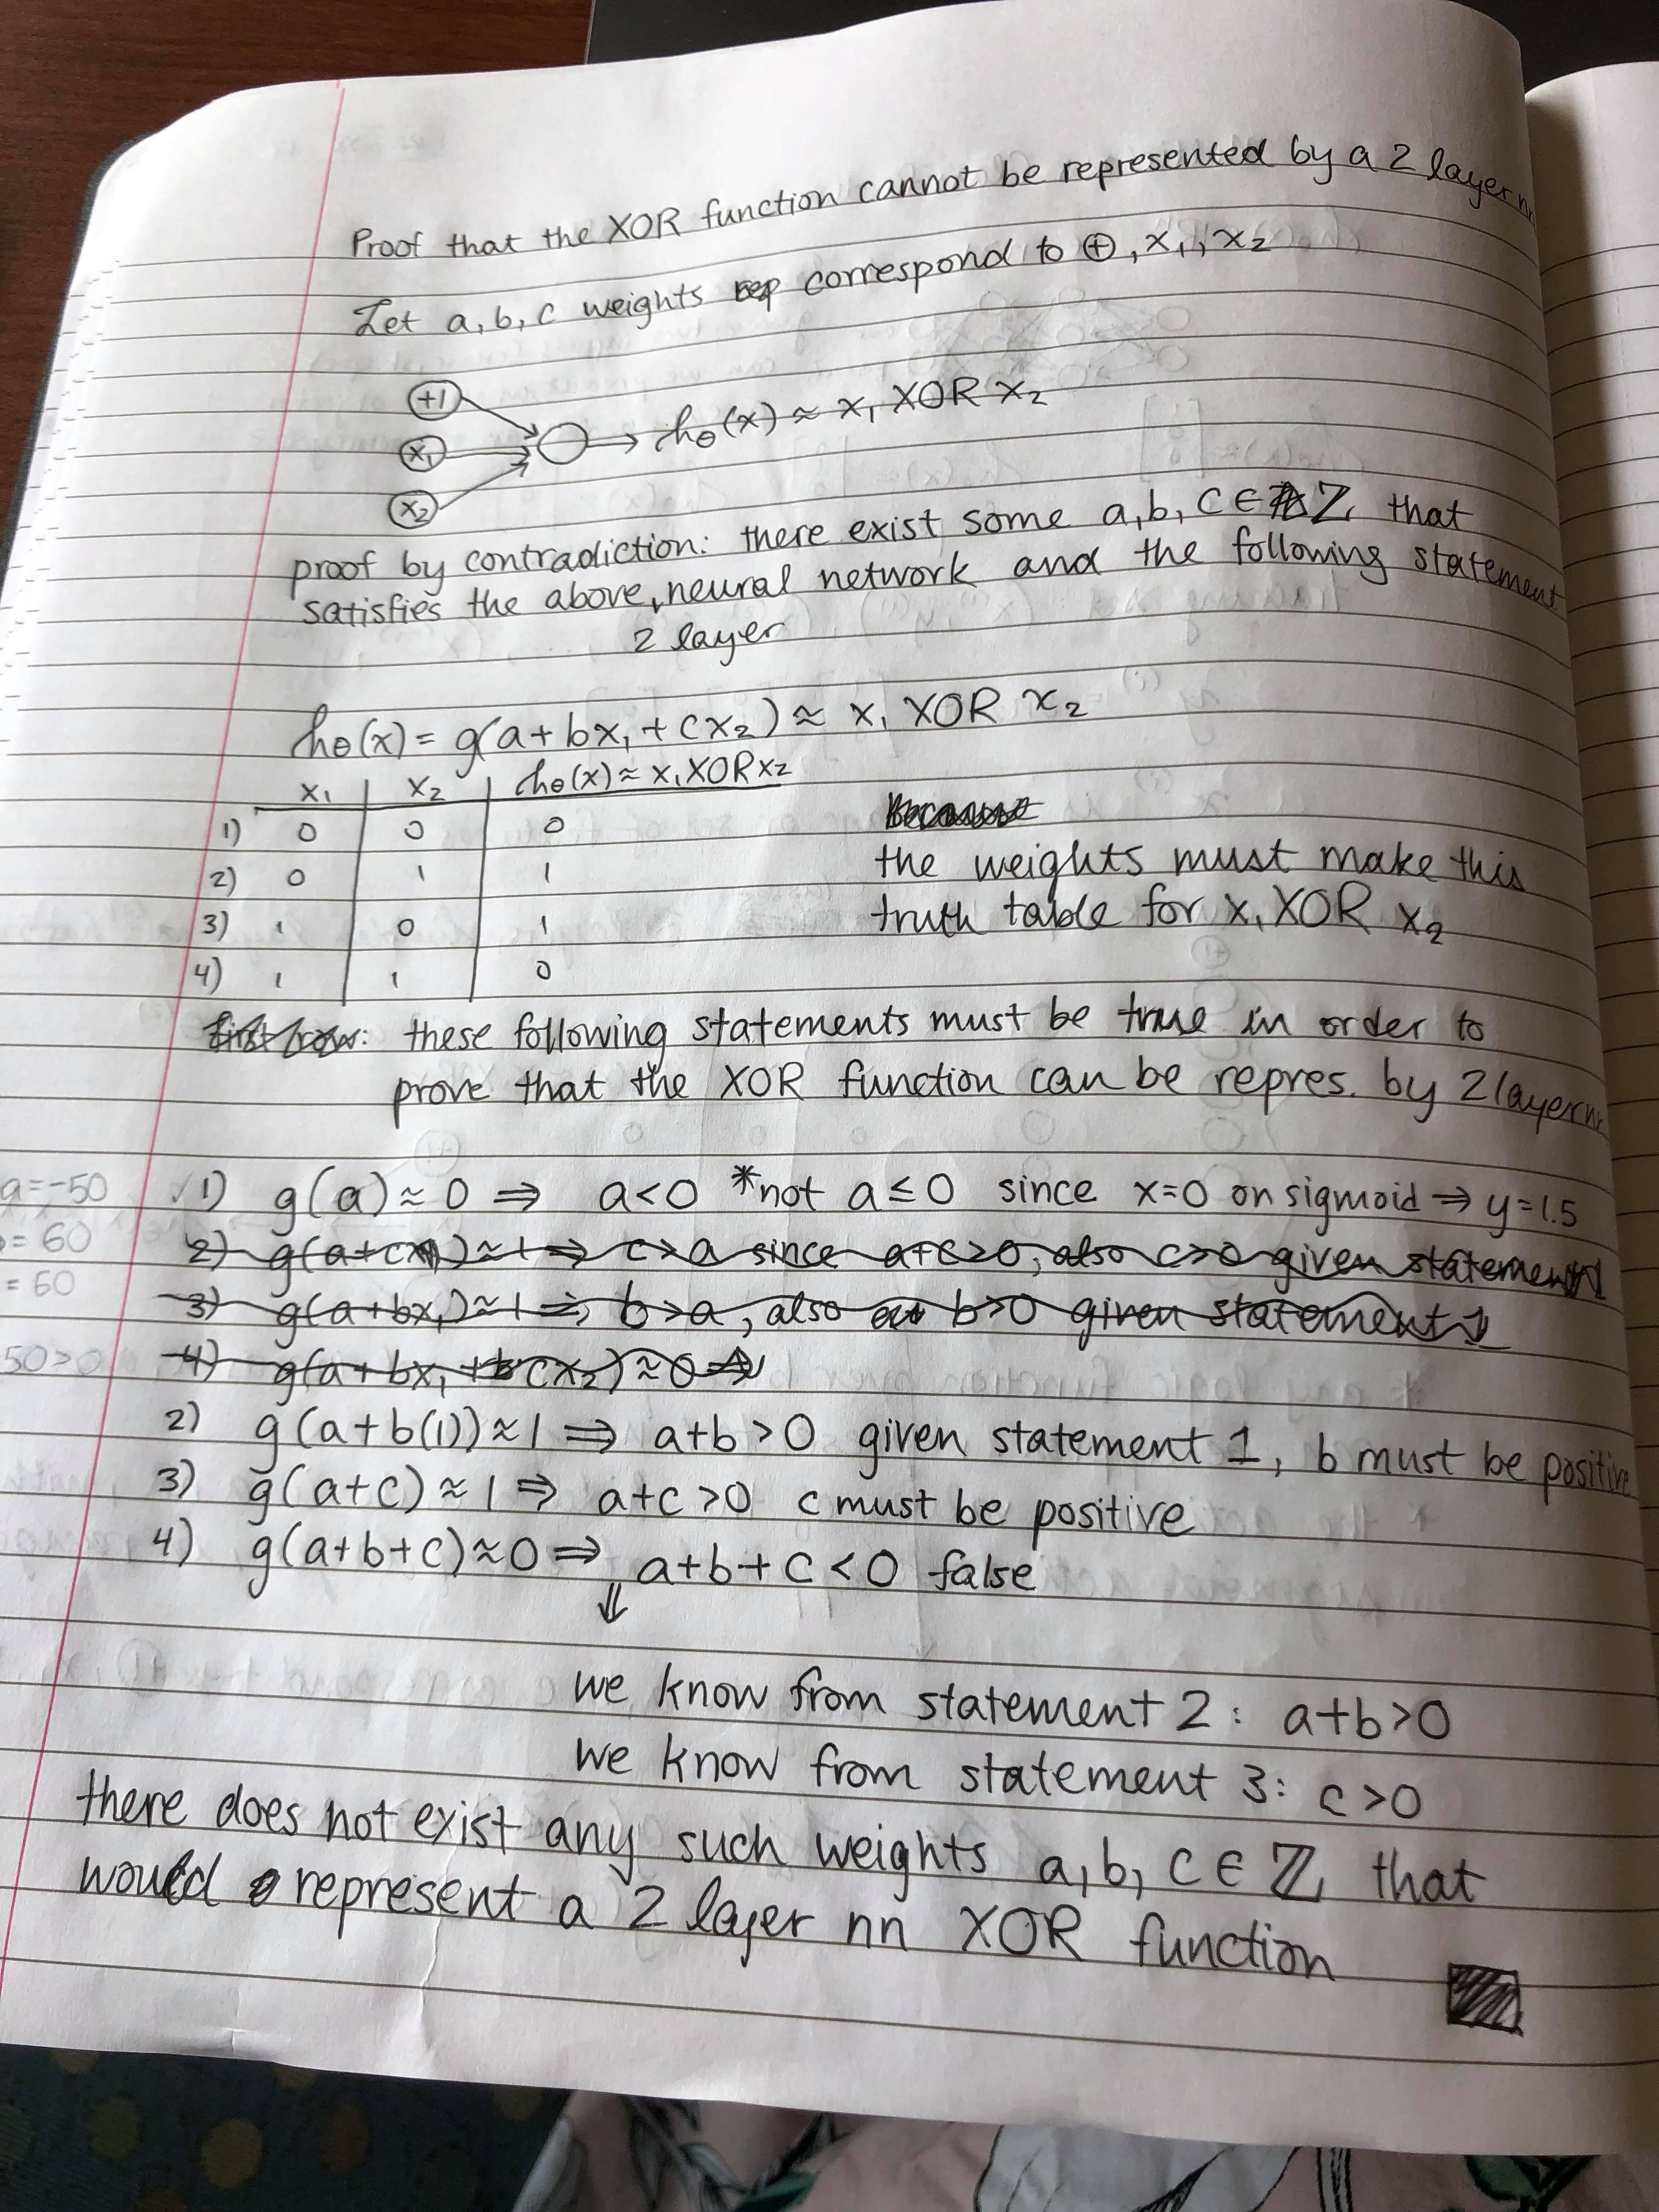 Proof that the XOR function cannot be represented by a 2 layer nn
Let a, b, c weights correspond to ⊕, x₁, x₂
+1
x₁
x₂
hθ(x) ≈ x₁ XOR x₂
proof by contradiction: there exist some a, b, c ∈ ℤ that
satisfies the above 2 layer neural network and the following statement
hθ(x) = g(a + bx₁ + cx₂) ≈ x₁ XOR x₂
x₁ x₂ hθ(x) ≈ x₁ XOR x₂
1) 0 0 0
2) 0 1 1
3) 1 0 1
4) 1 1 0
Because
the weights must make this
truth table for x₁ XOR x₂
first row: these following statements must be true in order to
prove that the XOR function can be repres. by 2 layer nn
a = -50
= 60
= 60
50 > 0
✓ 1) g(a) ≈ 0 ⇒ a < 0 *not a ≤ 0 since x=0 on sigmoid ⇒ y = 1.5
2) g(a+cx₁) ≈ 1 ⇒ c > a since a+c>0, also c>0 given statement 1
3) g(a+bx₁) ≈ 1 ⇒ b > a, also b>0 given statement 1
4) g(a+bx₁ + cx₂) ≈ 0 ⇒
2) g(a+b(1)) ≈ 1 ⇒ a+b > 0 given statement 1, b must be positive
3) g(a+c) ≈ 1 ⇒ a+c > 0 c must be positive
4) g(a+b+c) ≈ 0 ⇒ a+b+c < 0 false
⇓
we know from statement 2: a+b>0
we know from statement 3: c>0
there does not exist any such weights a, b, c ∈ ℤ that
would represent a 2 layer nn XOR function